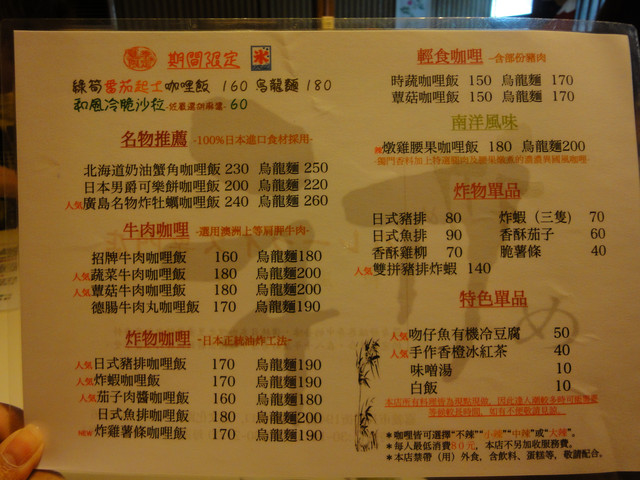 期間限定 米
綠筍番茄起士咖哩飯 160 烏龍麵 180
和風冷脆沙拉 60
名物推薦 -100%日本進口食材採用-
北海道奶油蟹角咖哩飯 230 烏龍麵 250
日本男爵可樂餅咖哩飯 200 烏龍麵 220
人気 廣島名物炸牡蠣咖哩飯 240 烏龍麵 260
牛肉咖哩 -選用澳洲上等肩胛牛肉-
招牌牛肉咖哩飯 160 烏龍麵180
人気 蔬菜牛肉咖哩飯 180 烏龍麵200
人気 蕈菇牛肉咖哩飯 180 烏龍麵200
德腸牛肉丸咖哩飯 170 烏龍麵190
炸物咖哩 -日本正統油炸工法-
人気 日式豬排咖哩飯 170 烏龍麵190
人気 炸蝦咖哩飯 170 烏龍麵190
人気 茄子肉醬咖哩飯 160 烏龍麵180
日式魚排咖哩飯 180 烏龍麵200
NEW 炸雞薯條咖哩飯 170 烏龍麵190
輕食咖哩 -含部份豬肉
時蔬咖哩飯 150 烏龍麵 170
蕈菇咖哩飯 150 烏龍麵 170
南洋風味
燉雞腰果咖哩飯 180 烏龍麵200
炸物單品
日式豬排 80 炸蝦（三隻） 70
日式魚排 90 香酥茄子 60
香酥雞柳 70 脆薯條 40
人気 雙拼豬排炸蝦 140
特色單品
人気 吻仔魚有機冷豆腐 50
人気 手作香橙冰紅茶 40
味噌湯 10
白飯 10
＊咖哩皆可選擇“不辣”“小辣”“中辣”或“大辣”。
＊每人最低消費80元，本店不另加收服務費。
＊本店禁帶（用）外食，含飲料、蛋糕等，敬請配合。